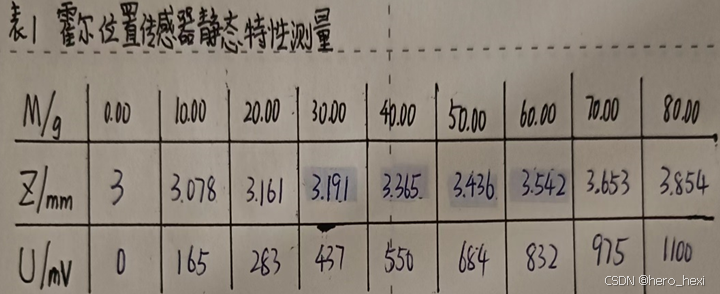 表1 霍尔位置传感器静态特性测量
M/g 0.00 10.00 20.00 30.00 40.00 50.00 60.00 70.00 80.00
Z/mm 3 3.078 3.161 3.191 3.365 3.436 3.542 3.653 3.854
U/mV 0 165 283 437 550 684 832 975 1100
CSDN @hero_hexi